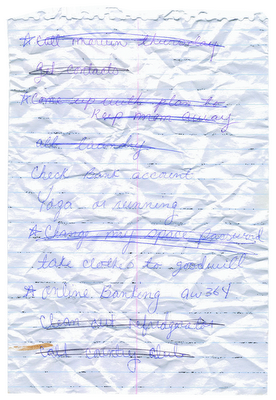 ☆ Call
Get contacts
☆ Come up with plan to
Keep mom away
all laundry
Check Bank account
Yoga or running
☆ Change my space password
take clothes to goodwill
☆ Online Banking aw364
Clean out refrigerator
Call country club